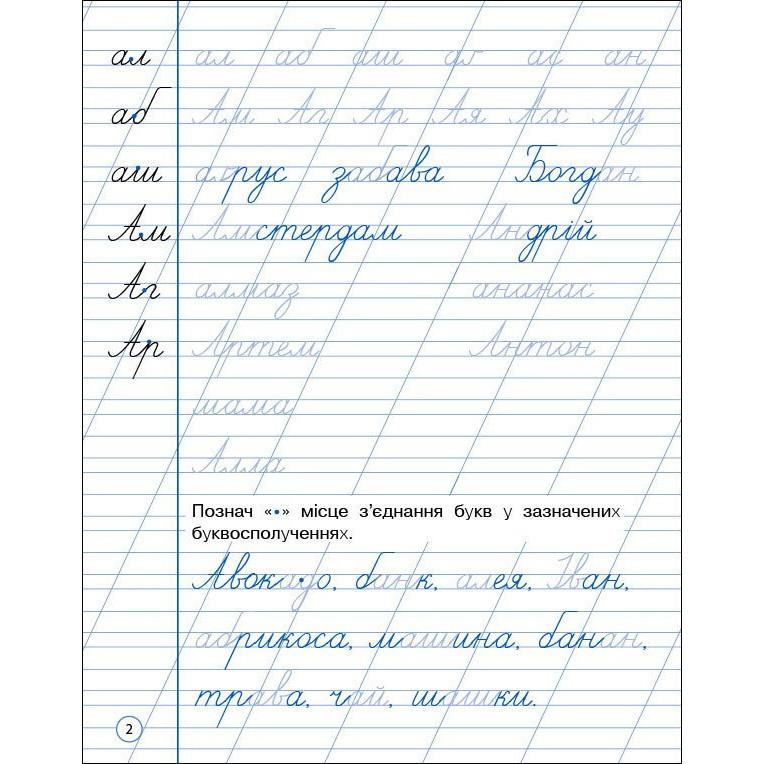 ал ал аб аш ас ан
аб Ам Аг Ар Ая Ах Ау
аш забава Богдан
Ам Амстердам Андрій
Аг алмаз ананас
Ар Артем Антон
мама
Алла
Познач «•» місце з’єднання букв у зазначених
буквосполученнях.
Авокадо, банк, алея, Іван,
абрикоса, машина, банан,
трава, чай, шашки.
2